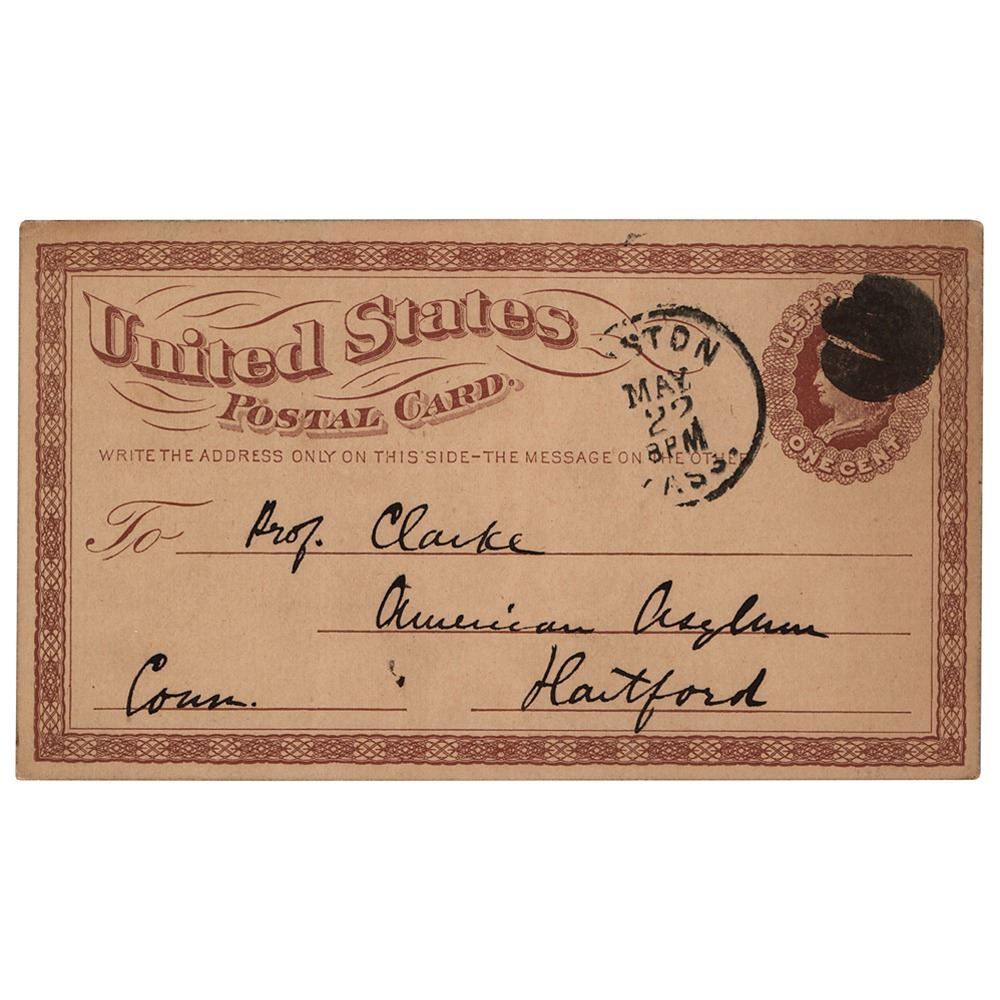 United States
POSTAL CARD.
WRITE THE ADDRESS ONLY ON THIS SIDE-THE MESSAGE ON THE OTHER
STON
MAY
22
8PM
ASS.
U.S. PO
ONE CENT
To Prof. Clarke
American Asylum
Hartford
Conn.